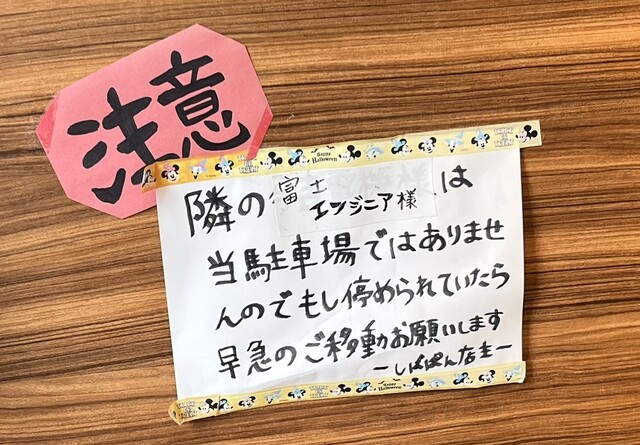 注意
隣の富士エンジニア様は
当駐車場ではありませ
んのでもし停められていたら
早急のご移動お願いします
ーしぱぱん店主ー